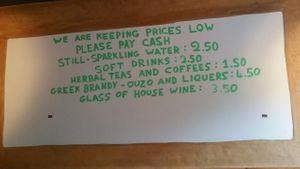 WE ARE KEEPING PRICES LOW
PLEASE PAY CASH
STILL-SPARKLING WATER: 2.50
SOFT DRINKS: 2.50
HERBAL TEAS AND COFFEES: 1.50
GREEK BRANDY-OUZO AND LIQUERS: 4.50
GLASS OF HOUSE WINE: 3.50